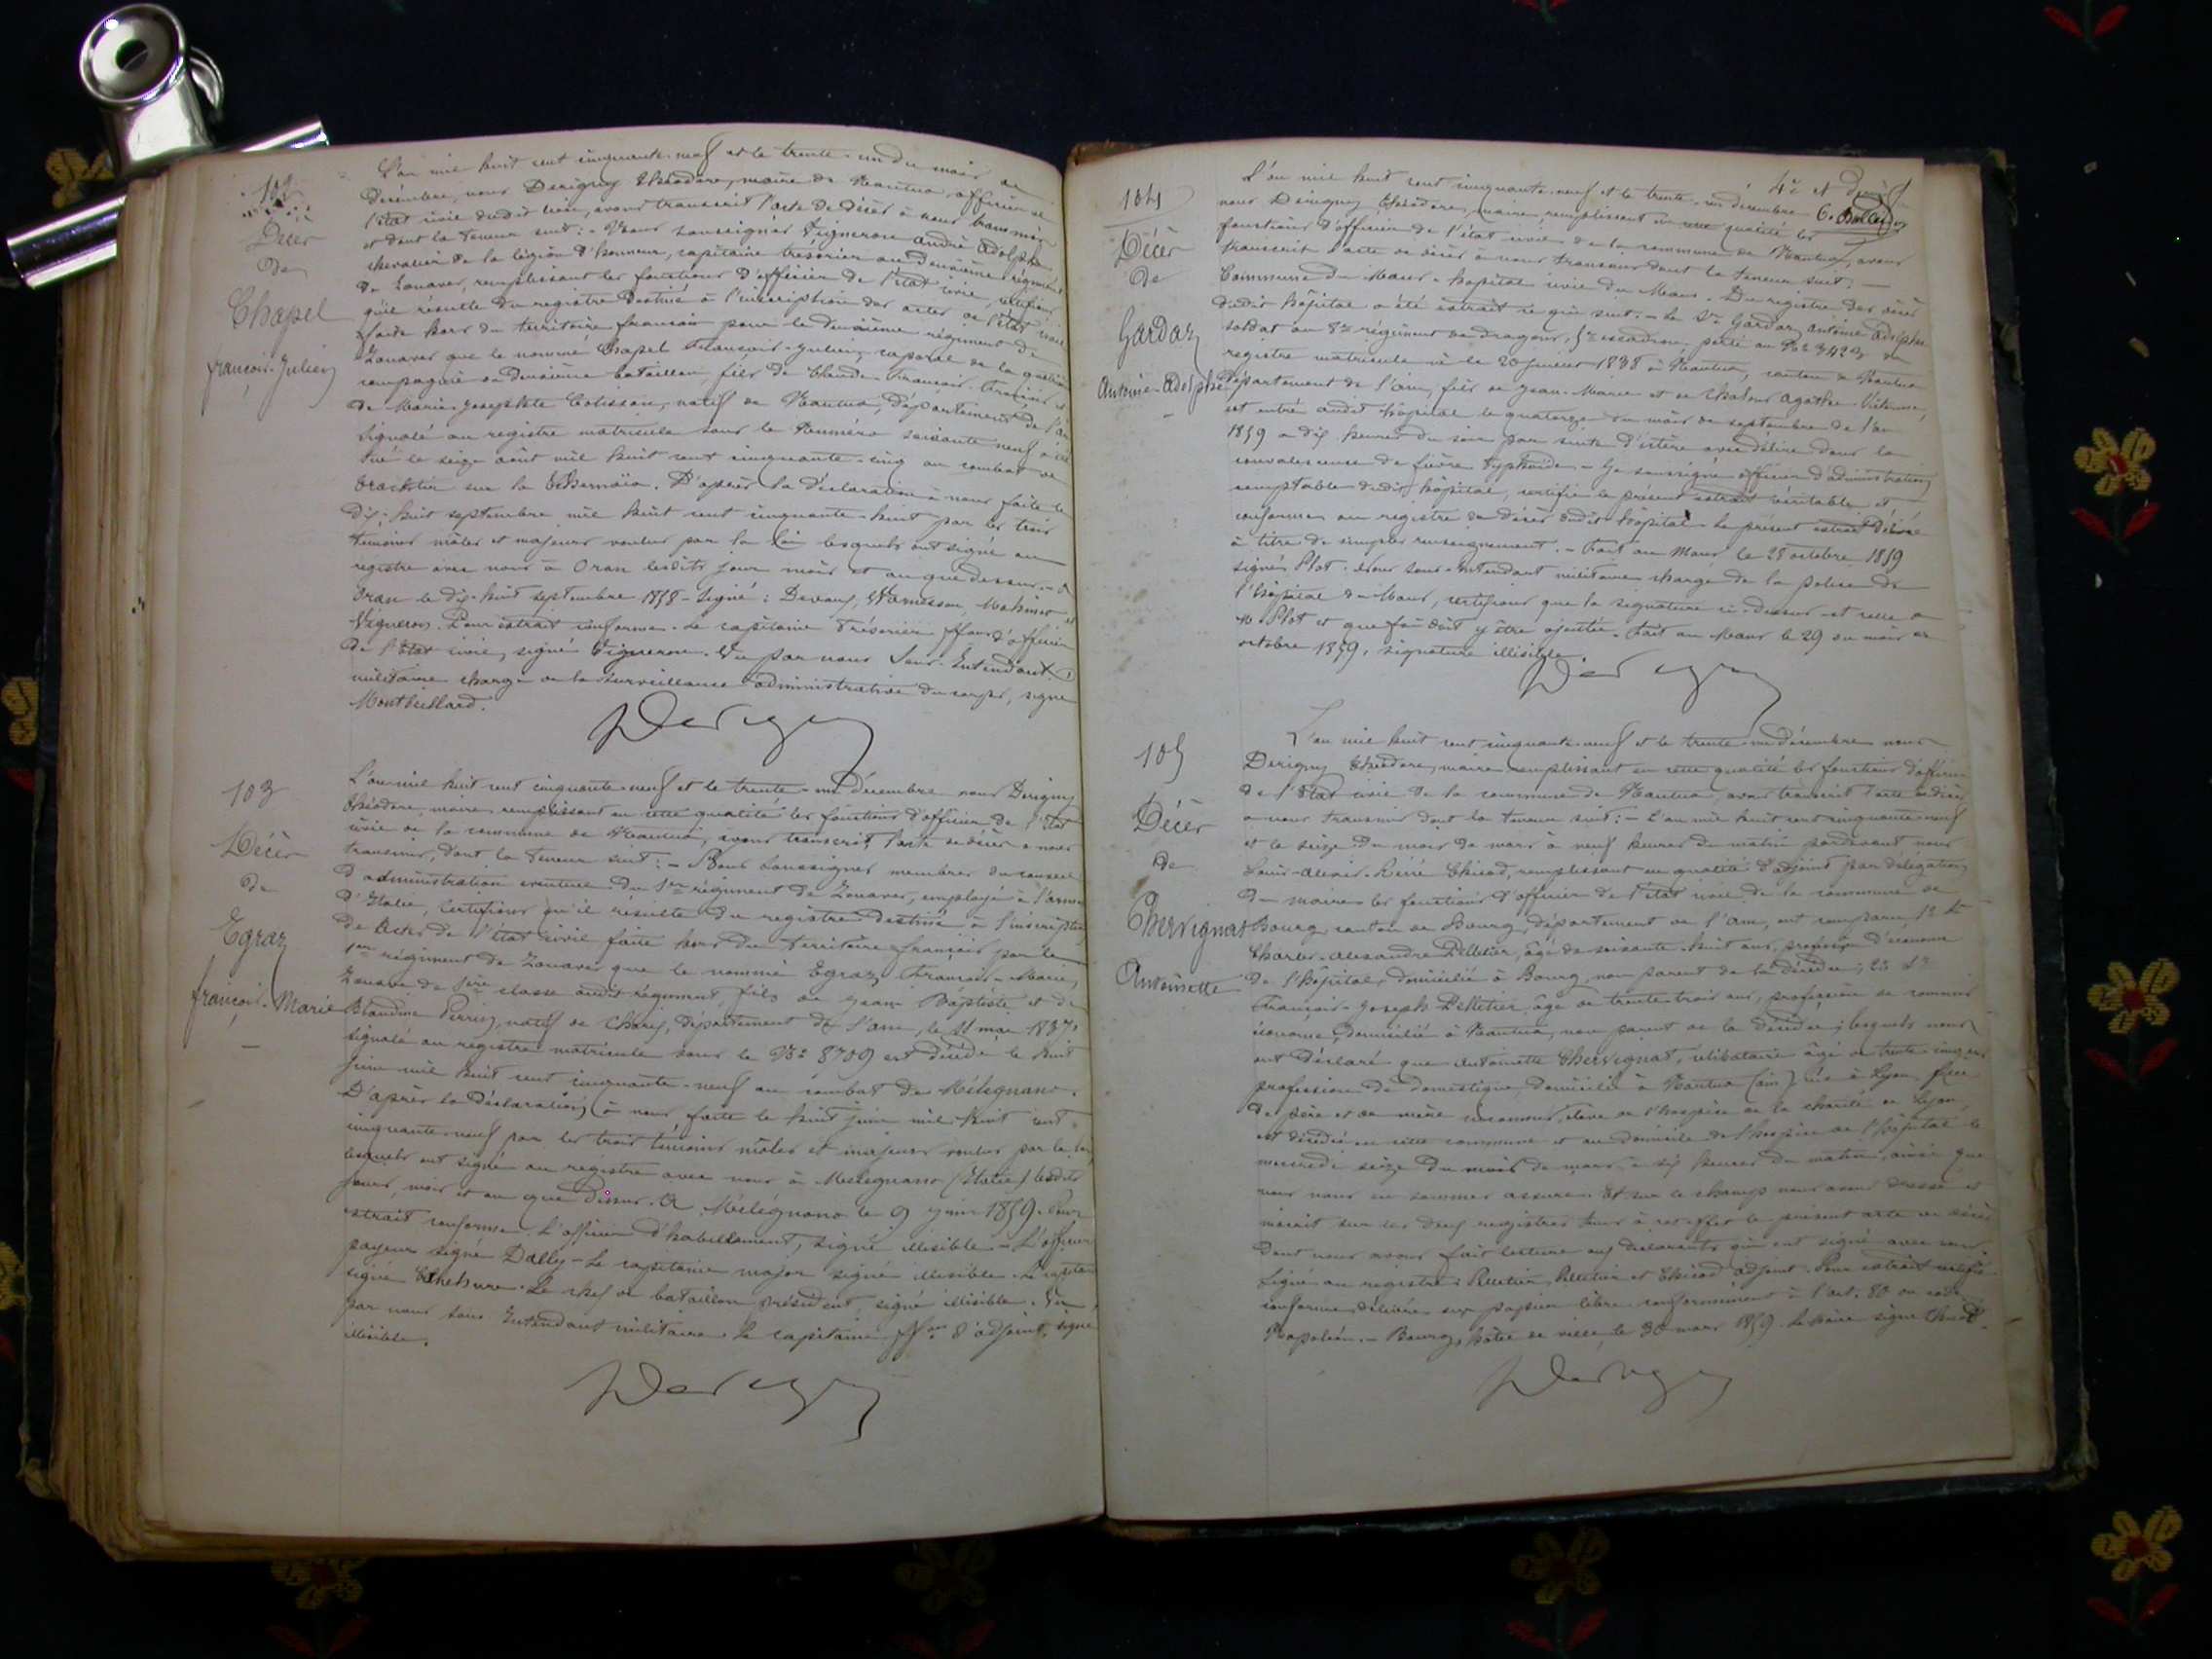 102
Décès
de
Chapel
françois-Julien
L'an mil huit cent cinquante-neuf et le trente-un du mois de
décembre, nous Derigny Théodore, maire de Nantua, officier de
l'état civil dudit lieu, avons transcrit l'acte de décès à nous transmis
et dont la teneur suit: - Nous soussigné Vigneron andré adolphe,
chevalier de la légion d'honneur, capitaine trésorier au deuxième régiment
de Zouaves, remplissant les fonctions d'officier de l'état civil, certifions
qu'il résulte du registre destiné à l'inscription des actes de l'état civil
faits hors du territoire français pour le deuxième régiment de
Zouaves que le nommé Chapel françois-Julien, caporal de la quatrième
compagnie du deuxième bataillon, fils de Claude-François et
de Marie-Josephte Colisson, natif de Nantua, département de l'Ain
signalé au registre matricule sous le Numéro soixante neuf a été
tué le seize août mil huit cent cinquante-cinq au combat de
Tracktir sur la Tchernaïa. D'après la déclaration à nous faite le
dix-huit septembre mil huit cent cinquante-huit par les trois
témoins mâles et majeurs voulus par la loi lesquels ont signé au
registre avec nous à Oran lesdits jour mois et an que dessus. - à
Oran le dix-huit septembre 1858 - Signé: Devaux, Warnesson, Mohimo et
Vigneron. Pour extrait conforme. Le capitaine Trésorier ffons d'officier
de l'état civil, signé Vigneron. Vu par nous Sous-Intendant
militaire chargé de la surveillance administrative du corps, signé
Montbeillard.
Derigny
103
Décès
de
Egraz
françois-Marie
L'an mil huit cent cinquante-neuf et le trente-un décembre nous Derigny
Théodore, maire, remplissant en cette qualité les fonctions d'officier de l'état
civil de la commune de Nantua, avons transcrit l'acte de décès à nous
transmis, dont la teneur suit: - Nous Soussignés membres du conseil
d'administration éventuel du 1er régiment de Zouaves, employé à l'armée
d'Italie, Certifions qu'il résulte du registre destiné à l'inscription
de Actes de l'état civil faits hors du territoire français pour le
1er régiment de Zouaves que le nommé Egraz François-Marie,
Zouave de 1ère classe audit régiment, fils de Jean Baptiste et de
Blandine Perrin, natif de Charix, département de l'Ain, le 11 mai 1837,
signalé au registre matricule sous le No 8709 est décédé le huit
juin mil huit cent cinquante-neuf au combat de Mélegnano.
D'après la déclaration à nous faite le huit juin mil huit cent
cinquante-neuf par les trois témoins mâles et majeurs voulus par la loi
lesquels ont signé au registre avec nous à Mélegnano (Italie) lesdits
jour, mois et an que dessus. A Mélégnano le 9 juin 1859. Pour
extrait conforme. L'officier d'habillement, signé illisible - L'officier
payeur signé Dally - Le capitaine major signé illisible. Le capitaine
signé. Le chef de bataillon président, signé illisible. Vu
par nous Sous Intendant militaire. Le capitaine ffons d'adjoint, signé
illisible.
Derigny
4e et dernier
104
Décès
de
Gardaz
Antoine-adolphe
L'an mil huit cent cinquante-neuf et le trente-un décembre
nous Derigny Théodore, maire, remplissant en cette qualité les
fonctions d'officier de l'état civil de la commune de Nantua, avons
transcrit l'acte de décès à nous transmis dont la teneur suit: -
Commune du Mans - hôpital civil du Mans. Du registre des décès
dudit hôpital a été extrait ce qui suit: - Le Sr Gardaz antoine adolphe
soldat au 8e régiment de dragons, 5e escadron, porté au No 3423 du
registre matricule né le 20 janvier 1838 à Nantua, canton de Nantua
département de l'ain, fils de Jean-Marie et de Chatour agathe-Victorine,
est entré audit hôpital le quatorze du mois de septembre de l'an
1859 à dix heures du soir par suite d'ictère avec délire dans la
convalescence de fièvre typhoïde. - Je soussigné officier d'administration
comptable dudit hôpital, certifie le présent extrait véritable et
conforme au registre de décès dudit hôpital. Le présent extrait délivré
à titre de simple renseignement. - Fait au Mans le 28 octobre 1859
signé Plot. Nous sous-intendant militaire chargé de la police de
l'hôpital du Mans, certifions que la signature ci-dessus est celle de
M. Plot et que foi doit y être ajoutée. Fait au Mans le 29 du mois de
octobre 1859, signature illisible.
Derigny
105
Décès
de
Chervignat
Antoinette
L'an mil huit cent cinquante-neuf et le trente-un décembre nous
Derigny Théodore, maire remplissant en cette qualité les fonctions d'officier
de l'état civil de la commune de Nantua, avons transcrit l'acte de décès
à nous transmis dont la teneur suit: - L'an mil huit cent cinquante-neuf
et le seize du mois de mars à neuf heures du matin pardevant nous
Louis-alexis-Réné Chicod, remplissant en qualité d'adjoint par délégation
du maire les fonctions d'officier de l'état civil de la commune de
Bourg, canton de Bourg, département de l'Ain, ont comparu 1o Sr
Charles-alexandre Pelletier, âgé de soixante-huit ans, profession d'économe
de l'hôpital, domicilié à Bourg, non parent de la décédée; 2o Sr
François-Joseph Pelletier, âgé de trente-trois ans, profession de commis
économe, domicilié à Nantua, non parent de la décédée; lesquels nous
ont déclaré que Antoinette Chervignat, célibataire âgée de trente-cinq ans
profession de domestique, domiciliée à Nantua (ain) née à Lyon, fille
de père et de mère inconnus, élève de l'hospice de la charité de Lyon,
est décédée en cette commune et au domicile de l'hospice de l'hôpital le
mercredi seize du mois de mars à six heures du matin, ainsi que
nous nous en sommes assuré. Et sur le champ nous avons dressé et
inscrit sur les deux registres tenus à cet effet le présent acte de décès
dont nous avons fait lecture aux déclarants qui ont signé avec nous.
Signé au registre: Pelletier, Pelletier et Chicod adjoint. Pour extrait certifié
conforme, délivré sur papier libre conformément à l'art. 80 du code
Napoléon. - Bourg, hôtel de ville, le 30 mars 1859. Le Maire signé Chicod.
Derigny